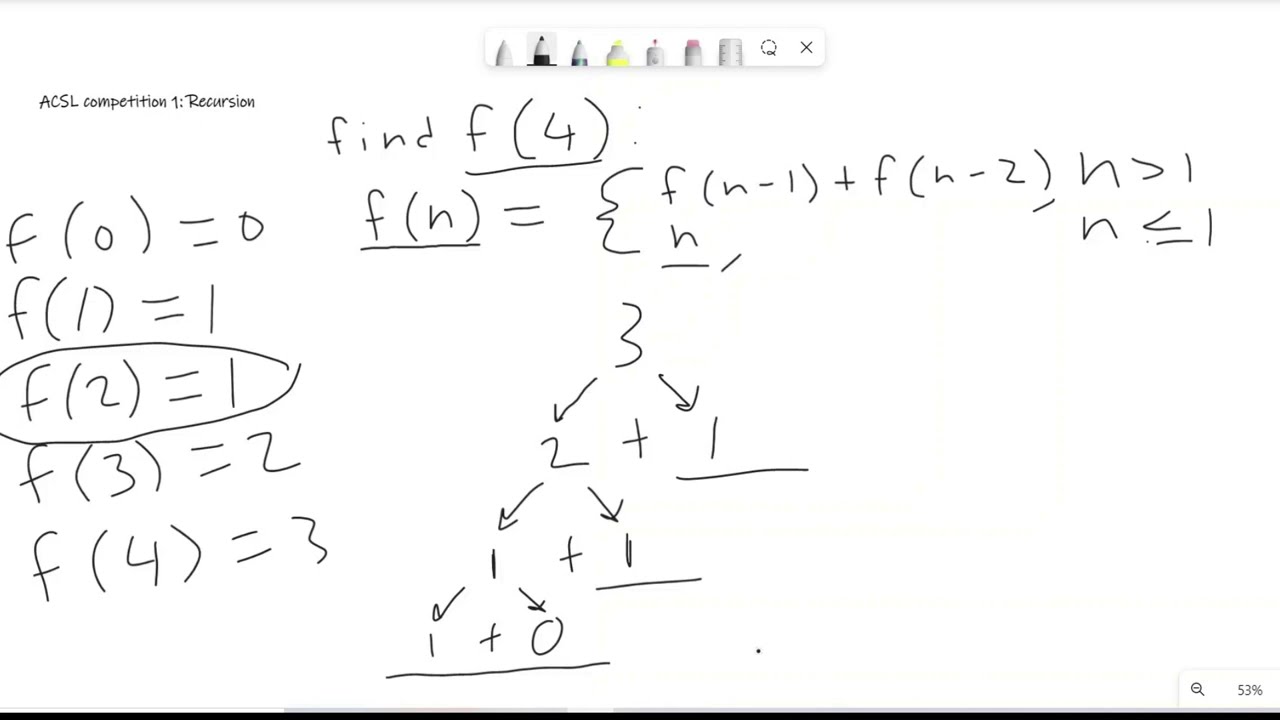 ACSL competition 1: Recursion
find f(4):
f(n) = { f(n-1) + f(n-2), n > 1
n, n ≤ 1
f(0) = 0
f(1) = 1
f(2) = 1
f(3) = 2
f(4) = 3
3
2 + 1
1 + 1
1 + 0
53%